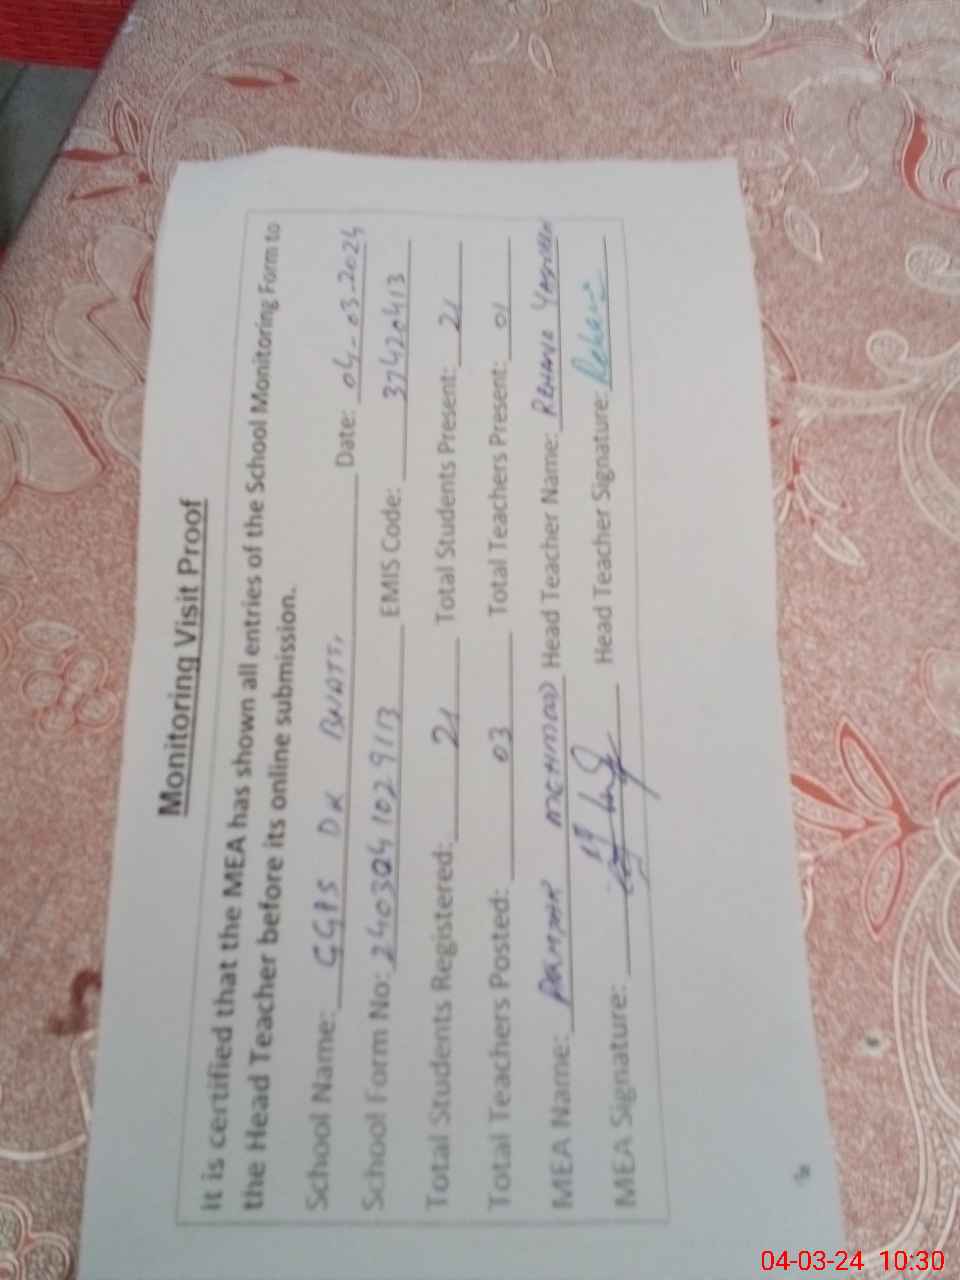 Monitoring Visit Proof
It is certified that the MEA has shown all entries of the School Monitoring Form to
the Head Teacher before its online submission.
School Name: GGPS DK BHATTI Date: 04-03-2024
School Form No: 2403041029113 EMIS Code: 37420413
Total Students Registered: 21 Total Students Present: 21
Total Teachers Posted: 03 Total Teachers Present: 01
MEA Name: MEHMOOD Head Teacher Name: REHANA YASMEEN
MEA Signature: Head Teacher Signature: Rehana
04-03-24 10:30